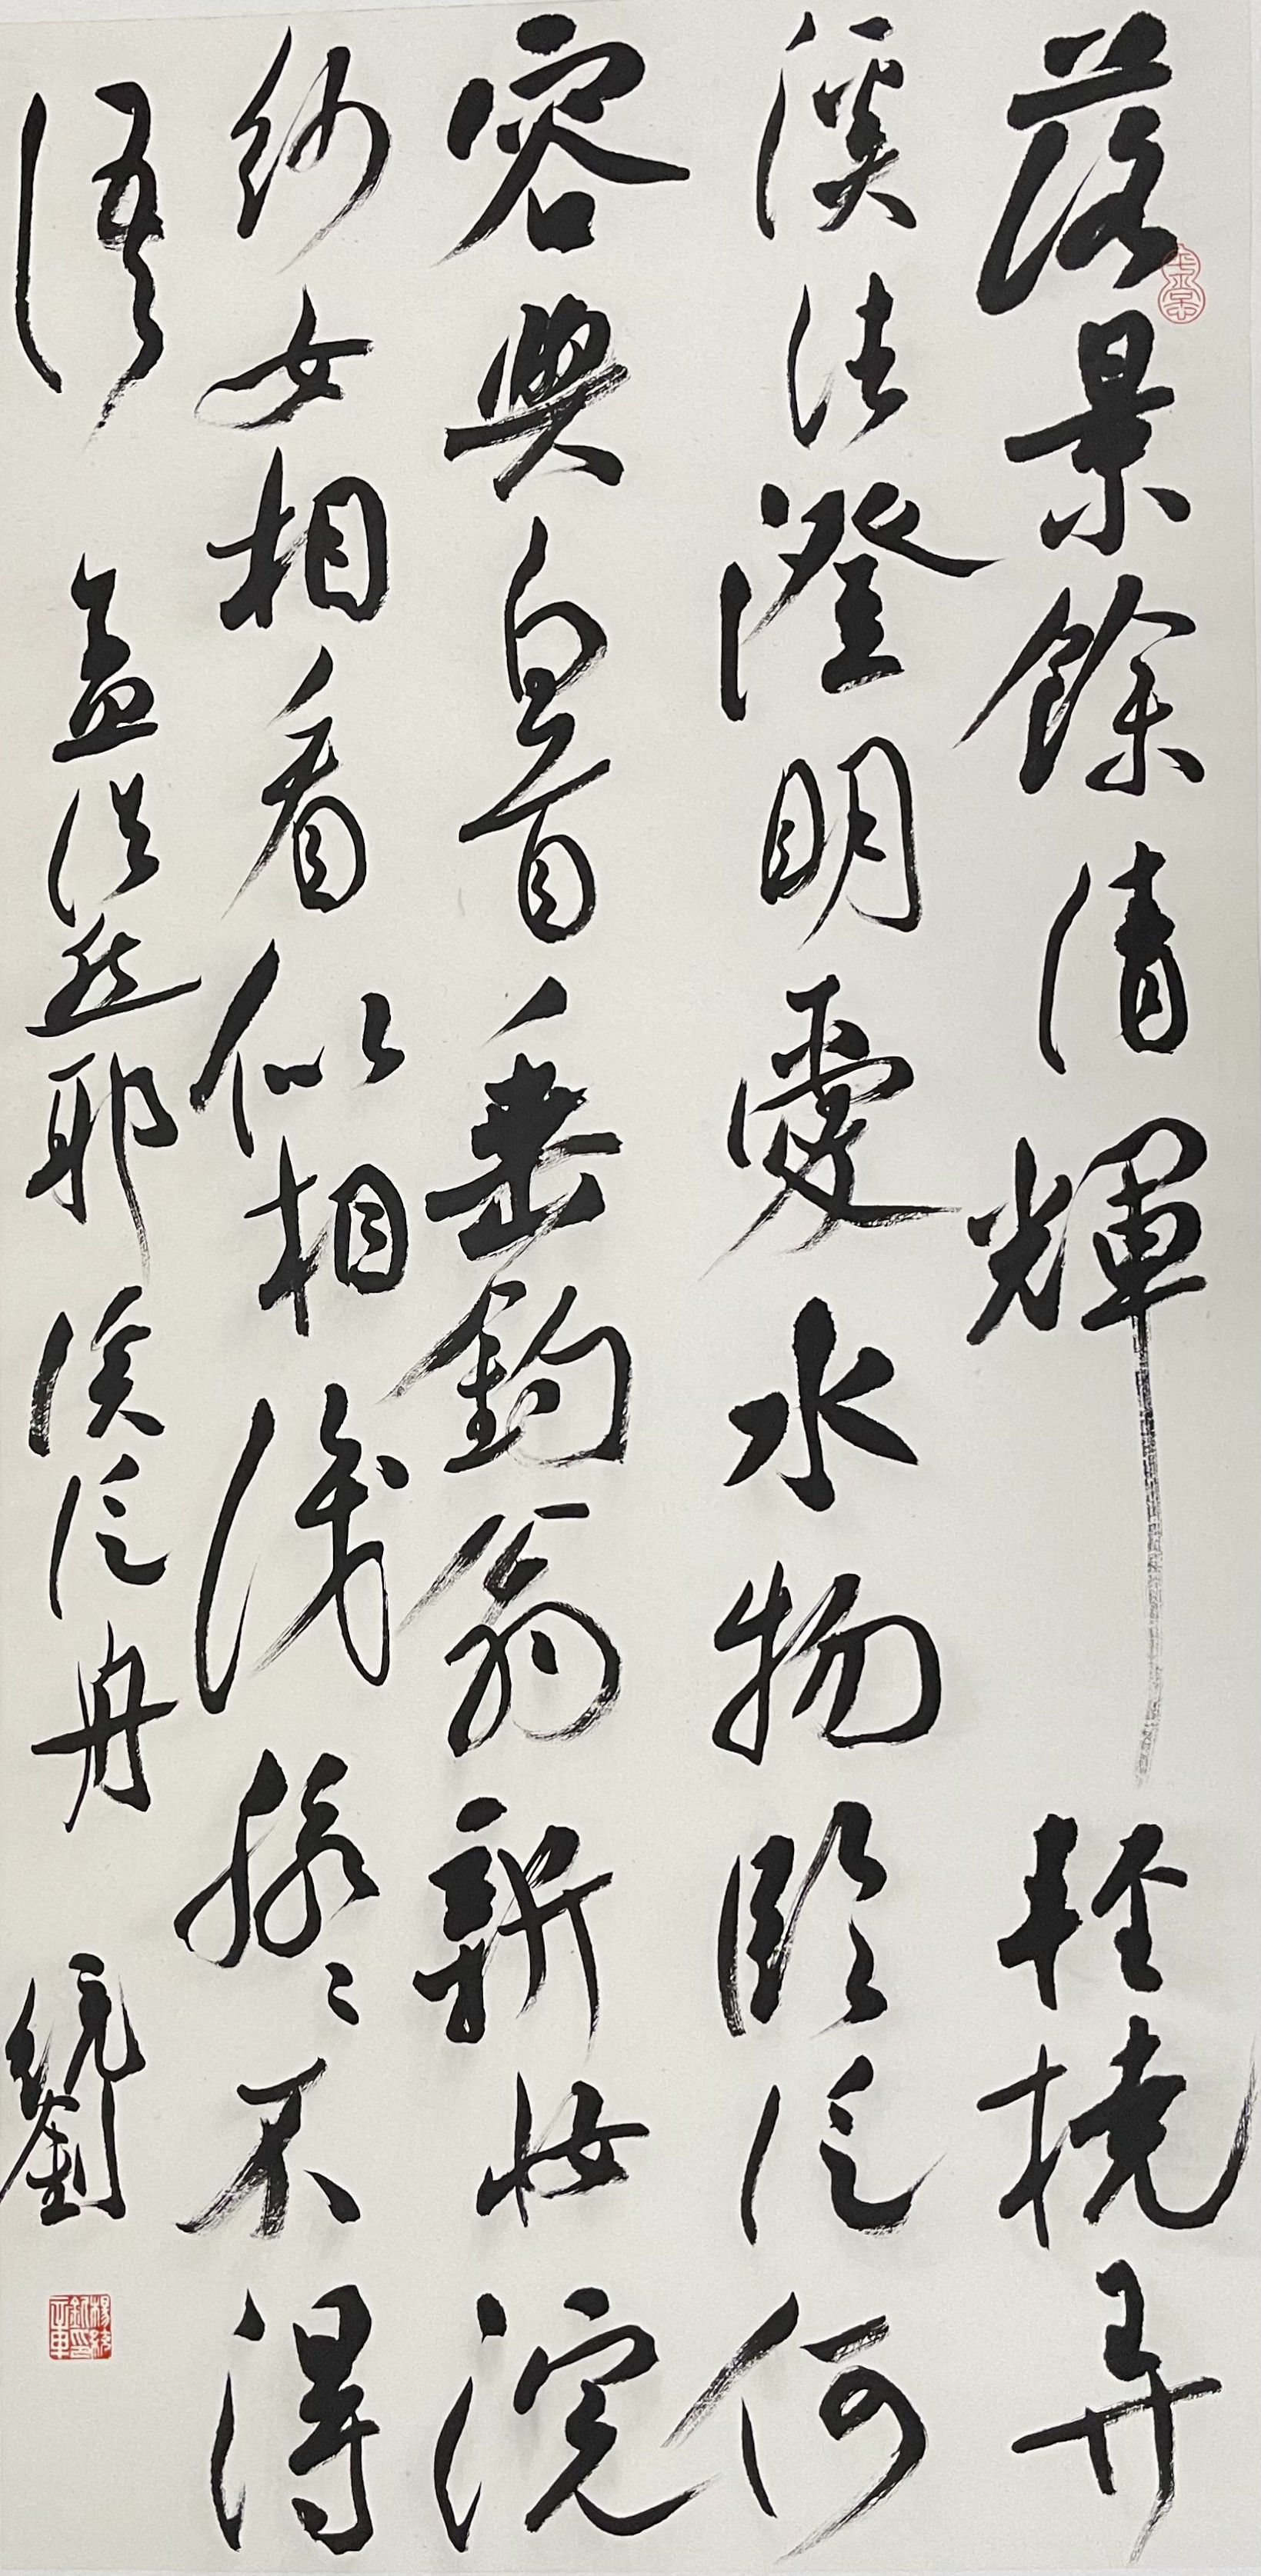 落景餘清輝輕橈弄
溪渚澄明愛水物臨泛何
容與白首垂釣翁新妝浣
紗女相看似相識脈〻不得
語 孟浩然耶溪泛舟 統釗